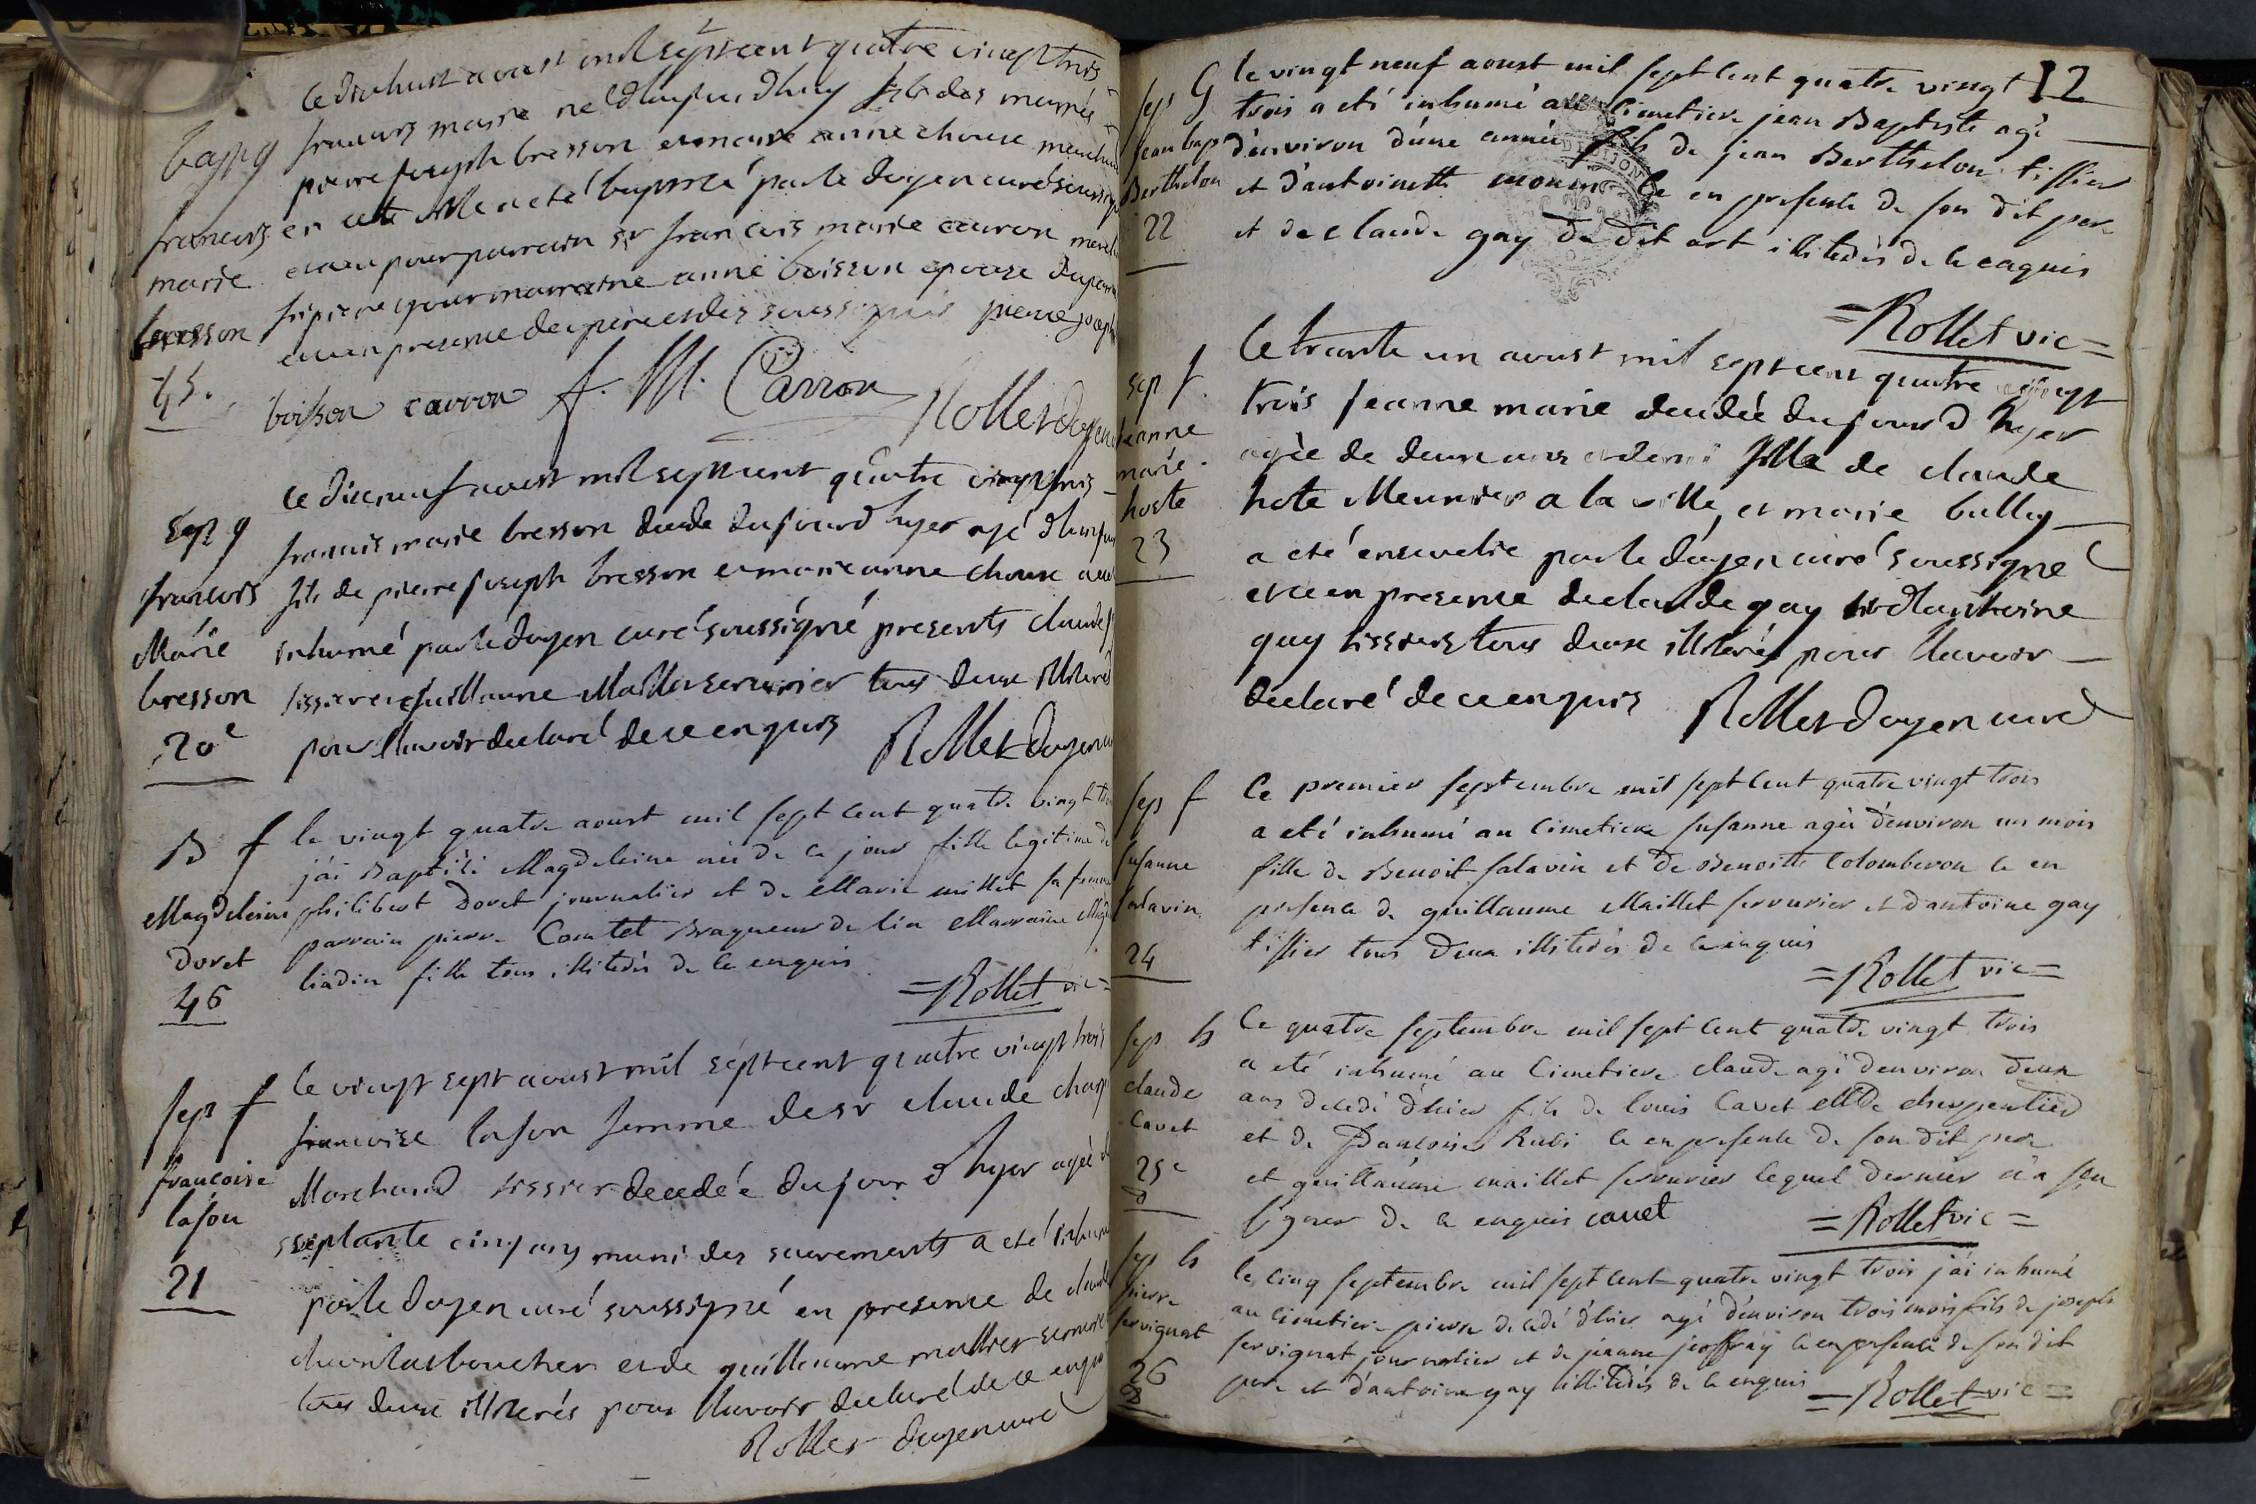 bapt g
francois
marie
bresson
45.
le dix huit aoust mil sept cent quatre vingt trois
francois marie né d'aujourdhuy fils des mariés
pierre joseph bresson et marie anne choux marchand
en cette ville a eté baptisé par le doyen curé soussigné
et a eu pour parrain sr francois marie carron
et pour marraine anne boisson epouse
et ce en presence du père et des soussignés pierre joseph
boisson carron f. M. Carron Rollet doyen
Sep g
francois
Marie
bresson
20e
le dix neuf aoust mil sept cent quatre vingt trois
francois marie bresson decedé du jour d'hyer agé d'un jour
fils de pierre joseph bresson et marie anne choux a eté
inhumé par le doyen curé soussigné presents claude
tissier et guillaume Maillet serrurier tous deux illiterés
pour l'avoir declaré de ce enquis Rollet doyen
B f
Magdeleine
Doret
46
le vingt quatre aoust mil sept cent quatre vingt
j'ai Baptisé Magdeleine née de ce jour fille legitime de
philibert Doret journalier et de Marie millet sa femme
parrain pierre Comtet Braqueur de lin Marraine
liadin fille tous illiterés de ce enquis
=Rollet vic=
sep f
francoise
lafon
21
le vingt sept aoust mil sept cent quatre vingt trois
francoise lafon femme de sr claude
Marchand tissier decedée du jour d'hyer agée de
septante cinq ans muni des sacrements a eté inhumé
par le doyen curé soussigné en presence de claude
boucher et de guillaume maillet serrurier
tous deux illiterés pour l'avoir declaré de ce enquis
Rollet doyen curé
12
sep G
jean bap
Berthelon
22
le vingt neuf aoust mil sept cent quatre vingt
trois a eté inhumé au cimetiere jean Baptiste agé
d'environ d'une année fils de jean Berthelon tissier
et d'antoinette ce en presence de son dit pere
et de claude gay du dit art illiterés de ce enquis
=Rollet vic=
sep f.
jeanne
marie.
hoste
23
le trante un aoust mil sept cent quatre vingt
trois jeanne marie decedée du jour d'hyer
agée de deux ans et demi fille de claude
hote Meunier a la ville, et marie bulley
a eté ensevelie par le doyen curé soussigné
et ce en presence de claude gay et d'antoine
gay tissiers tous deux illiterés pour l'avoir
declaré de ce enquis Rollet doyen curé
sep f
susanne
salavin
24
Le premier septembre mil sept cent quatre vingt trois
a eté inhumé au cimetiere susanne agée d'environ un mois
fille de Benoit salavin et de Benoitte Colomberon ce en
presence de guillaume Maillet serrurier et d'antoine gay
tissier tous deux illiterés de ce enquis
=Rollet vic=
sep b
claude
Cavet
25e
Le quatre septembre mil sept cent quatre vingt trois
a eté inhumé au cimetiere claude agé d'environ deux
ans decedé d'hier fils de louis Cavet Me charpentier
et de francoise Rubi ce en presence de son dit pere
et guillaume maillet serrurier lequel dernier n'a sçu
signer de ce enquis cavet =Rollet vic=
sep b
pierre
servignat
26
le cinq septembre mil sept cent quatre vingt trois j'ai inhumé
au cimetiere pierre decedé d'hier agé d'environ trois mois fils de joseph
servignat journalier et de jeanne jeoffray ce en presence de son dit
pere et d'antoine gay illiterés de ce enquis =Rollet vic=